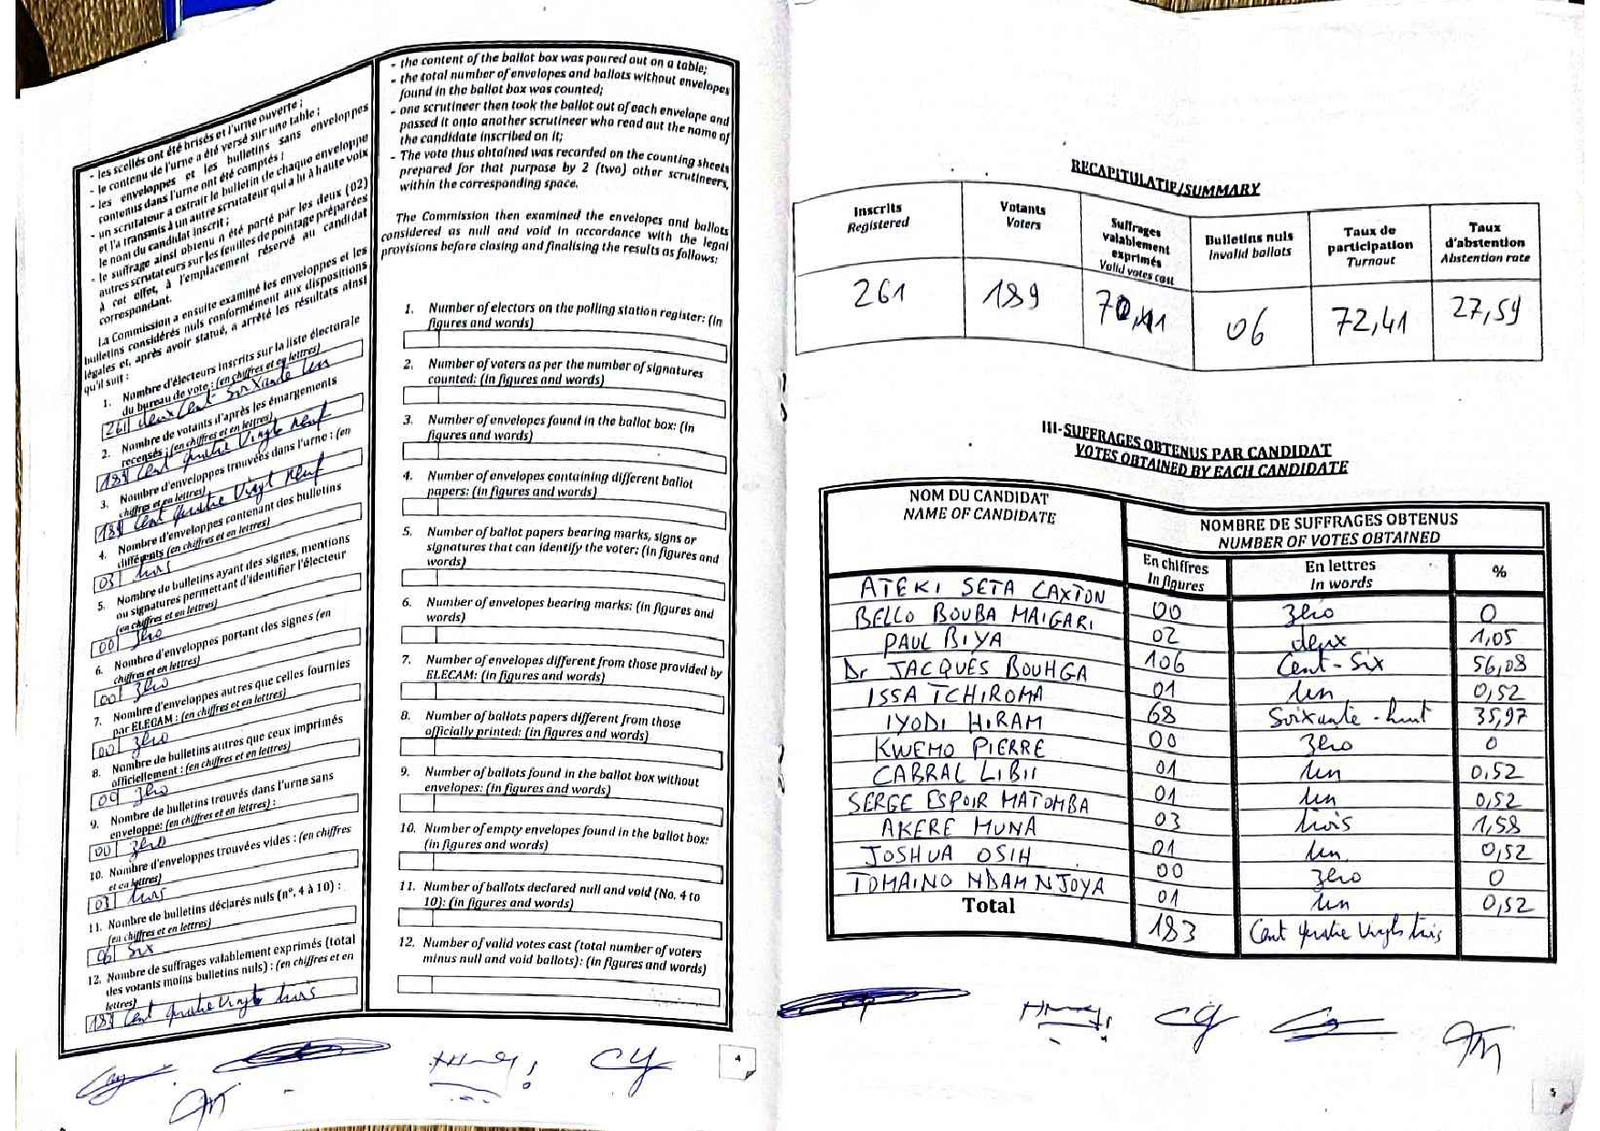 - les scellés ont été brisés et l'urne ouverte ;
- le contenu de l'urne a été versé sur une table ;
- les enveloppes et les bulletins sans enveloppes
contenus dans l'urne ont été comptés ;
- un scrutateur a extrait le bulletin de chaque enveloppe
et l'a transmis à un autre scrutateur qui a lu à haute voix
le nom du candidat inscrit ;
- le suffrage ainsi obtenu a été porté par les deux (02)
autres scrutateurs sur les feuilles de pointage préparées
à cet effet, à l'emplacement réservé au candidat
correspondant.
La Commission a ensuite examiné les enveloppes et les
bulletins considérés nuls conformément aux dispositions
légales et, après avoir statué, a arrêté les résultats ainsi
qu'il suit :
1. Nombre d'électeurs inscrits sur la liste électorale
du bureau de vote : (en chiffres et en lettres)
261 deux Cent Soixante un
2. Nombre de votants d'après les émargements
recensés : (en chiffres et en lettres)
189 Cent quatre Vingt Neuf
3. Nombre d'enveloppes trouvées dans l'urne : (en
chiffres et en lettres)
189 Cent quatre Vingt Neuf
4. Nombre d'enveloppes contenant des bulletins
différents (en chiffres et en lettres)
03 trois
5. Nombre de bulletins ayant des signes, mentions
ou signatures permettant d'identifier l'électeur
(en chiffres et en lettres)
00 zéro
6. Nombre d'enveloppes portant des signes (en
chiffres et en lettres)
00 zéro
7. Nombre d'enveloppes autres que celles fournies
par ELECAM : (en chiffres et en lettres)
00 zéro
8. Nombre de bulletins autres que ceux imprimés
officiellement : (en chiffres et en lettres)
00 zéro
9. Nombre de bulletins trouvés dans l'urne sans
enveloppe: (en chiffres et en lettres) :
00 zéro
10. Nombre d'enveloppes trouvées vides : (en chiffres
et en lettres)
03 trois
11. Nombre de bulletins déclarés nuls (n°. 4 à 10) :
(en chiffres et en lettres)
06 Six
12. Nombre de suffrages valablement exprimés (total
des votants moins bulletins nuls) : (en chiffres et en
lettres)
183 Cent quatre Vingts trois
- the content of the ballot box was poured out on a table;
- the total number of envelopes and ballots without envelopes
found in the ballot box was counted;
- one scrutineer then took the ballot out of each envelope and
passed it onto another scrutineer who read out the name of
the candidate inscribed on it;
- The vote thus obtained was recorded on the counting sheets
prepared for that purpose by 2 (two) other scrutineers,
within the corresponding space.
The Commission then examined the envelopes and ballots
considered as null and void in accordance with the legal
provisions before closing and finalising the results as follows:
1. Number of electors on the polling station register: (in
figures and words)
2. Number of voters as per the number of signatures
counted: (in figures and words)
3. Number of envelopes found in the ballot box: (in
figures and words)
4. Number of envelopes containing different ballot
papers: (in figures and words)
5. Number of ballot papers bearing marks, signs or
signatures that can identify the voter: (in figures and
words)
6. Number of envelopes bearing marks: (in figures and
words)
7. Number of envelopes different from those provided by
ELECAM: (in figures and words)
8. Number of ballots papers different from those
officially printed: (in figures and words)
9. Number of ballots found in the ballot box without
envelopes: (in figures and words)
10. Number of empty envelopes found in the ballot box:
(in figures and words)
11. Number of ballots declared null and void (No. 4 to
10): (in figures and words)
12. Number of valid votes cast (total number of voters
minus null and void ballots): (in figures and words)
4
RECAPITULATIF/SUMMARY
Inscrits Registered | Votants Voters | Suffrages valablement exprimés Valid votes cast | Bulletins nuls Invalid ballots | Taux de participation Turnout | Taux d'abstention Abstention rate
261 | 189 | 70,11 | 06 | 72,41 | 27,59
III-SUFFRAGES OBTENUS PAR CANDIDAT
VOTES OBTAINED BY EACH CANDIDATE
NOM DU CANDIDAT
NAME OF CANDIDATE
NOMBRE DE SUFFRAGES OBTENUS
NUMBER OF VOTES OBTAINED
En chiffres In figures | En lettres In words | %
ATEKI SETA CAXTON 00 zéro 0
BELLO BOUBA MAIGARI 02 deux 1,05
PAUL BIYA 106 Cent-Six 56,08
Dr JACQUES BOUHGA 01 un 0,52
ISSA TCHIROMA 68 Soixante-huit 35,97
IYODI HIRAM 00 zéro 0
KWEMO PIERRE 01 un 0,52
CABRAL LIBII 01 un 0,52
SERGE ESPOIR MATOMBA 03 trois 1,58
AKERE MUNA 01 un 0,52
JOSHUA OSIH 00 zéro 0
TOMAINO NDAM NJOYA 01 un 0,52
Total 183 Cent quatre Vingts trois
5